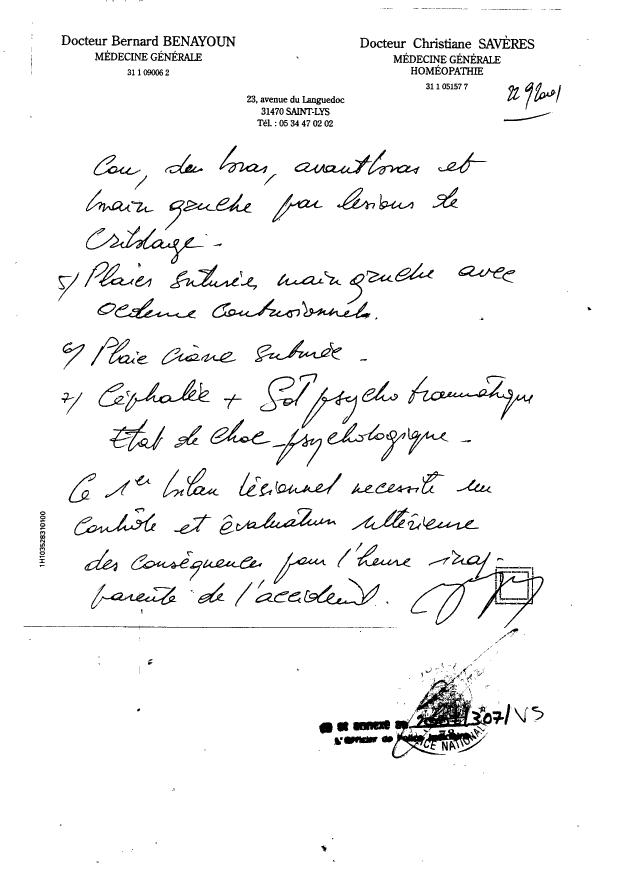 Docteur Bernard BENAYOUN
MÉDECINE GÉNÉRALE
31 1 09006 2
Docteur Christiane SAVÈRES
MÉDECINE GÉNÉRALE
HOMÉOPATHIE
31 1 05157 7
22 9 2001
23, avenue du Languedoc
31470 SAINT-LYS
Tél. : 05 34 47 02 02
Cou, du bras, avant bras et
main gauche par lesions de
Criblage -
5) Plaies suturées main gauche avec
Oedeme Contusionnel.
6) Plaie Crâne suturée -
7) Céphalée + Sd psycho traumatique
Etat de choc psychologique -
Ce 1er bilan lésionnel necessite un
Contrôle et évaluation ultérieure
des conséquences pour l'heure inap-
parente de l'accident.
1H103528310100
et annexé au /307/VS
L'Officier de Police Judiciaire
NATIONAL